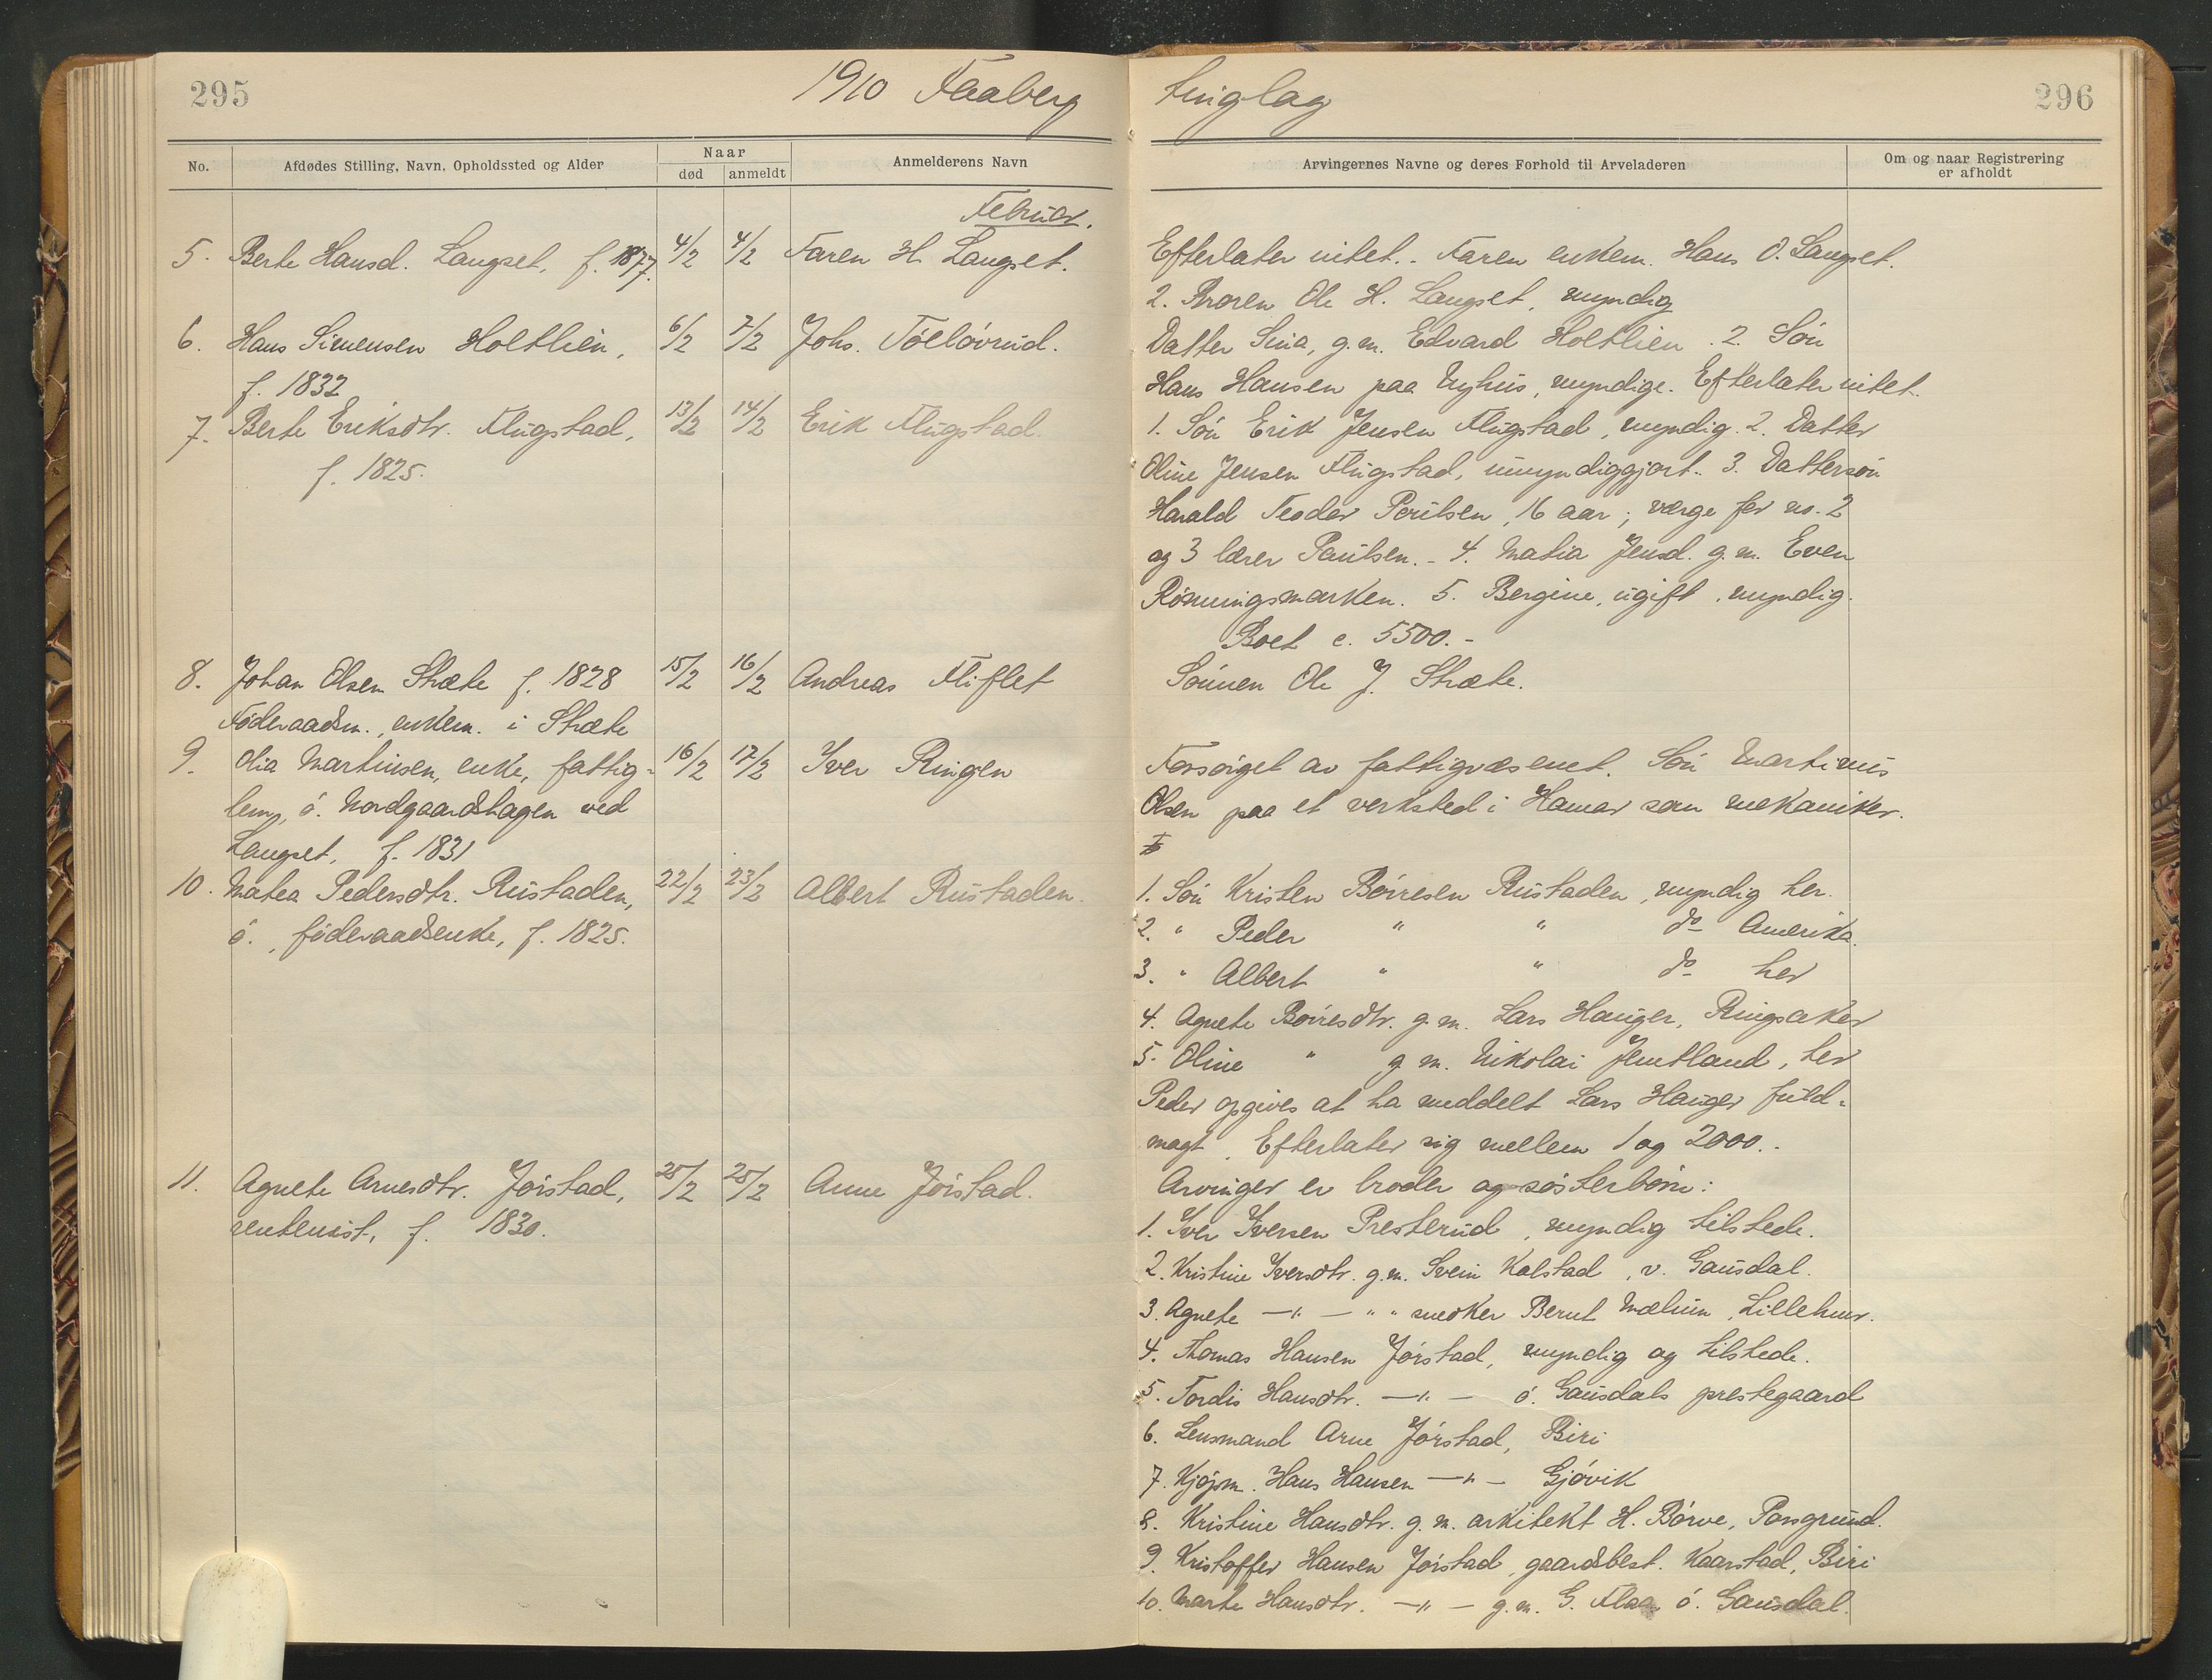 295
1910 Faaberg
tinglag
296
No.
Afdødes Stilling, Navn, Opholdssted og Alder
Naar
død
anmeldt
Anmelderens Navn
Arvingernes Navne og deres Forhold til Arveladeren
Om og naar Registrering
er afholdt
Februar.
5. Berte Hansd. Langset, f. 1877. 4/2 4/2 Faren H. Langset.
Efterlater intet. - Faren enkem. Hans O. Langset.
2. Broren Ole H. Langset, myndig
6. Hans Simensen Holtlien, 6/2 7/2 Johs. Töllövrud.
f. 1832
Datter Sina, g.m. Edvard Holtlien. 2. Sön
Hans Hansen paa Nyhus, myndige. Efterlater intet.
7. Berte Eriksdtr. Flugstad, 13/2 14/2 Erik Flugstad.
f. 1825.
1. Sön Erik Jensen Flugstad, myndig. 2. Datter
Oline Jensen Flugstad, umyndiggjort. 3. Dattersön
Harald Teodor Poulsen, 16 aar; værge for no. 2
og 3 lærer Paulsen. - 4. Matia Jensd. g.m. Even
Rönningsmarken. 5. Bergine, ugift, myndig.
Boet c. 5500.-
8. Johan Olsen Stræte f. 1828 15/2 16/2 Andreas Fliflet
Föderaadsm., enkem. i Stræte
Sönnen Ole J. Stræte.
9. Olia Martinsen, enke, fattig- 16/2 17/2 Iver Ringen
lem, ö. Nordgaardshagen ved
Langset, f. 1831
Forsörget av fattigvæsenet. Sön Martinus
Olsen paa et verksted i Hamar som mekaniker.
10. Matea Pedersdtr. Rustaden, 22/2 23/2 Albert Rustaden.
ö., föderaadsenke, f. 1825.
1. Sön Kristen Börresen Rustaden, myndig her.
2. " Peder " " do Amerika.
3. " Albert " " do her
4. Agnete Börresdtr. g.m. Lars Hauger, Ringsaker
5. Oline " g.m. Nikolai Jemtland, her
Peder opgives at ha meddelt Lars Hauger fuld-
magt. Efterlater sig mellem 1 og 2000.-
11. Agnete Arnesdtr. Jörstad, 25/2 25/2 Anne Jörstad.
rentenist, f. 1830.
Arvinger er broder og sösterbörn:
1. Iver Iversen Presterud, myndig tilstede.
2. Kristine Iversdtr. g.m. Svein Kalstad, v. Gausdal.
3. Agnete —"— " " snedker Bernt Mælum, Lillehmr.
4. Thomas Hansen Jörstad, myndig og tilstede.
5. Tordis Hansdtr. —"— ö. Gausdals prestegaard
6. Lensmand Arne Jörstad, Biri
7. Kjöpm. Hans Hansen —"— Gjövik
8. Kristine Hansdtr. g.m. arkitekt H. Börve, Porsgrund.
9. Kristoffer Hansen Jörstad, gaardbest. Kaarstad, Biri
10. Marte Hansdtr. —"— g.m. G. Flaa ö. Gausdal.